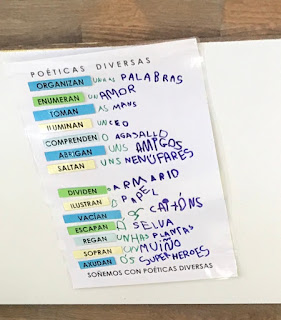 POÉTICAS DIVERSAS
ORGANIZAN UNHAS PALABRAS
ENUMERAN UN AMOR
TOMAN AS MANS
ILUMINAN UN CEO
COMPRENDEN O AGASALLO
ABRIGAN UNS AMIGOS
SALTAN UNS NENÚFARES
DIVIDEN O ARMARIO
ILUSTRAN O PAPEL
VACÍAN OS CAIXÓNS
ESCAPAN Á SELVA
REGAN UNHAS PLANTAS
SOPRAN UN MUIÑO
AXUDAN ÓS SUPERHEROES
SOÑEMOS CON POÉTICAS DIVERSAS